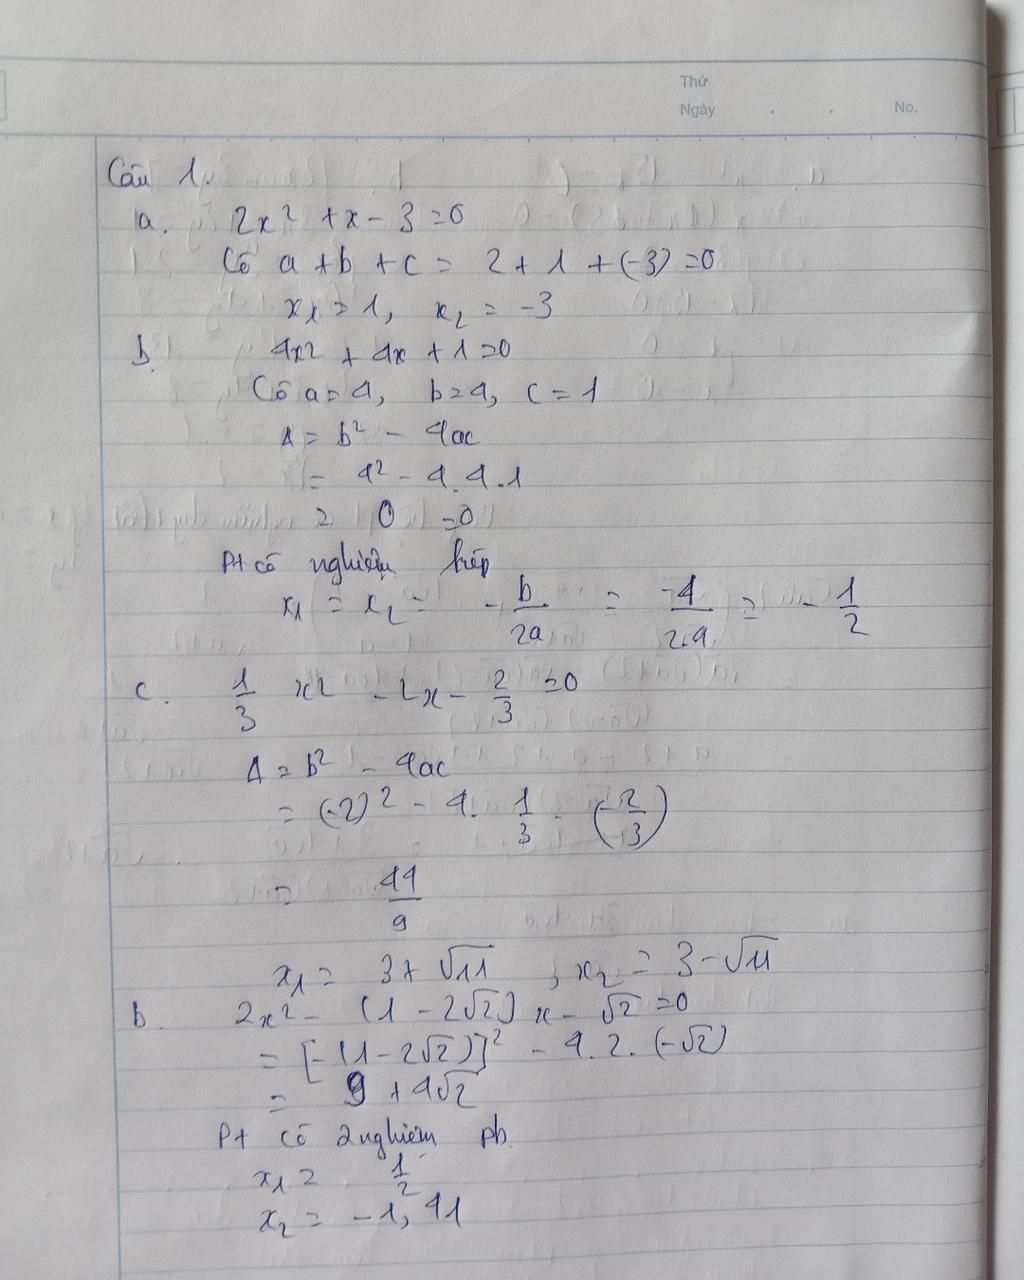 Thứ
Ngày . . No.
Câu 1.
a. 2x² + x - 3 = 0
Có a + b + c = 2 + 1 + (-3) = 0
x₁ = 1, x₂ = -3
b. 4x² + 4x + 1 = 0
Có a = 4, b = 4, c = 1
Δ = b² - 4ac
= 4² - 4.4.1
= 0 = 0
Pt có nghiệm kép
x₁ = x₂ = -b/2a = -4/2.4 = -1/2
c. 1/3 x² - 2x - 2/3 = 0
Δ = b² - 4ac
= (-2)² - 4. 1/3 . (-2/3)
= 44/9
x₁ = 3 + √11 ; x₂ = 3 - √11
b. 2x² - (1 - 2√2) x - √2 = 0
= [-(1 - 2√2)]² - 4.2.(-√2)
= 9 + 4√2
Pt có 2 nghiệm pb
x₁ = 1/2
x₂ = -1,41